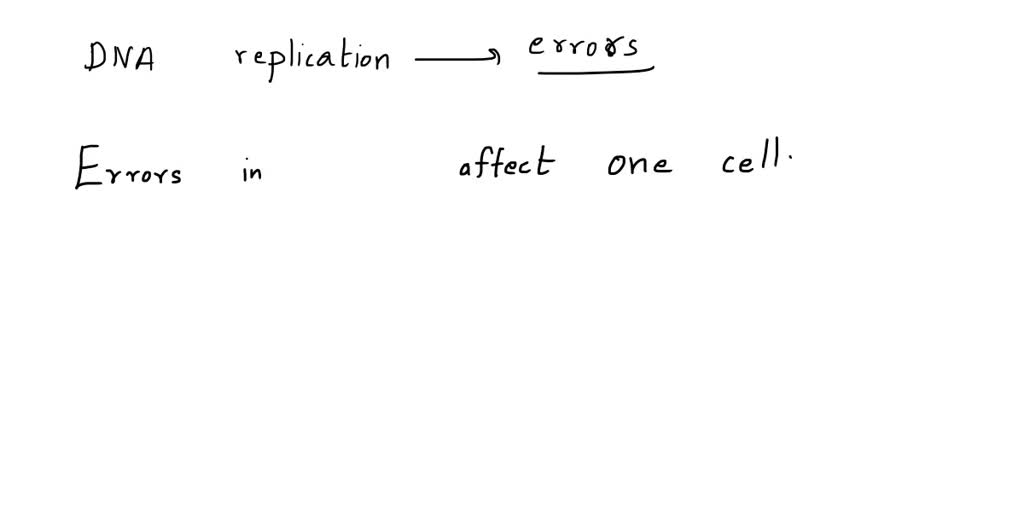 DNA replication → errors
Errors in affect one cell.